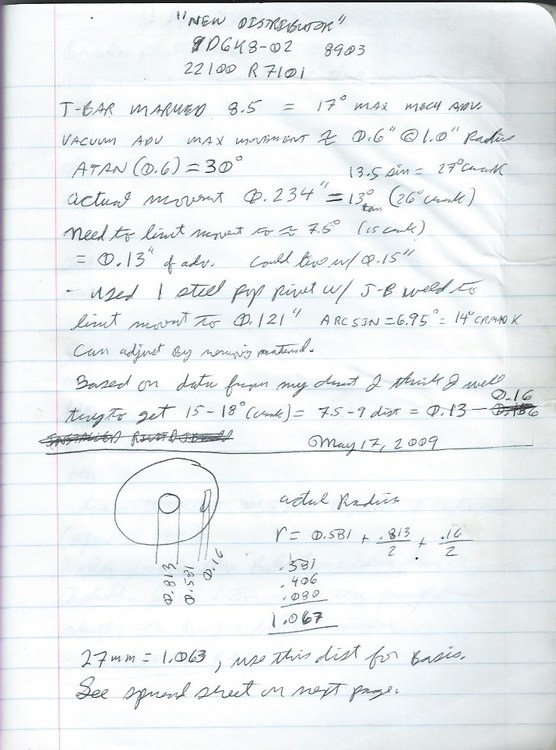 "NEW DISTRIBUTOR"
D6K8-02 8903
22100 R7101
T-BAR MARKED 8.5 = 17° MAX MECH ADV.
VACUUM ADV MAX MOVEMENT ≈ 0.6" @ 1.0" Radius
ATAN (0.6) = 30° 13.5 sin = 27° crank
actual movemt 0.234" = 13° tan (26° crank)
need to limit movemt to ≈ 7.5° (15 crank)
= 0.13" of adv. Could live w/ 0.15"
- used 1 steel pop rivet w/ J-B weld to
limit movmt to 0.121" ARCSIN = 6.95° = 14° CRANK
Can adjust by removing material.
Based on data from my dist I think I will
try to get 15-18° (crank) = 7.5-9 dist = 0.13 - 0.16
May 17, 2009
actual Radius
r = 0.581 + .813/2 + .16/2
.581
.406
.080
1.067
0.813
0.581
0.16
27mm = 1.063, use this dist for basis.
See spread sheet on next page.